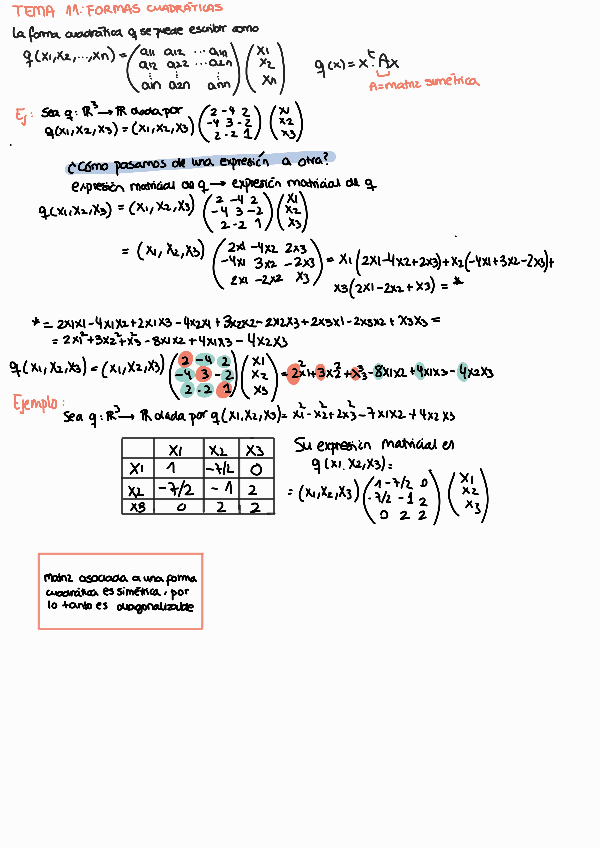 TEMA 11: FORMAS CUADRÁTICAS
La forma cuadrática q se puede escribir como
q(x1,x2,...,xn) = (a11 a12 ... a1n / a12 a22 ... a2n / ⋮ / a1n a2n ann) (x1 / x2 / xn)
q(x) = x^t · Ax
A=matriz simétrica
Ej: Sea q: R^3 → R dada por
q(x1,x2,x3) = (x1,x2,x3) (2 -4 2 / -4 3 -2 / 2 -2 1) (x1 / x2 / x3)
¿Cómo pasamos de una expresión a otra?
expresión matricial de q → expresión matricial de q
q(x1,x2,x3) = (x1,x2,x3) (2 -4 2 / -4 3 -2 / 2 -2 1) (x1 / x2 / x3)
= (x1,x2,x3) (2x1 -4x2 2x3 / -4x1 3x2 -2x3 / 2x1 -2x2 x3) = x1(2x1-4x2+2x3)+x2(-4x1+3x2-2x3)+
x3(2x1-2x2+x3) = *
* = 2x1x1-4x1x2+2x1x3-4x2x1+3x2x2-2x2x3+2x3x1-2x3x2+x3x3 =
= 2x1^2+3x2^2+x3^2-8x1x2+4x1x3-4x2x3
q(x1,x2,x3) = (x1,x2,x3) (2 -4 2 / -4 3 -2 / 2 -2 1) (x1 / x2 / x3) = 2x1^2+3x2^2+x3^2-8x1x2+4x1x3-4x2x3
Ejemplo:
Sea q: R^3 → R dada por q(x1,x2,x3) = x1^2-x2^2+2x3^2-7x1x2+4x2x3
x1 x2 x3
x1 1 -7/2 0
x2 -7/2 -1 2
x3 0 2 2
Su expresión matricial es
q(x1,x2,x3)=
= (x1,x2,x3) (1 -7/2 0 / -7/2 -1 2 / 0 2 2) (x1 / x2 / x3)
Matriz asociada a una forma
cuadrática es simétrica, por
lo tanto es diagonalizable